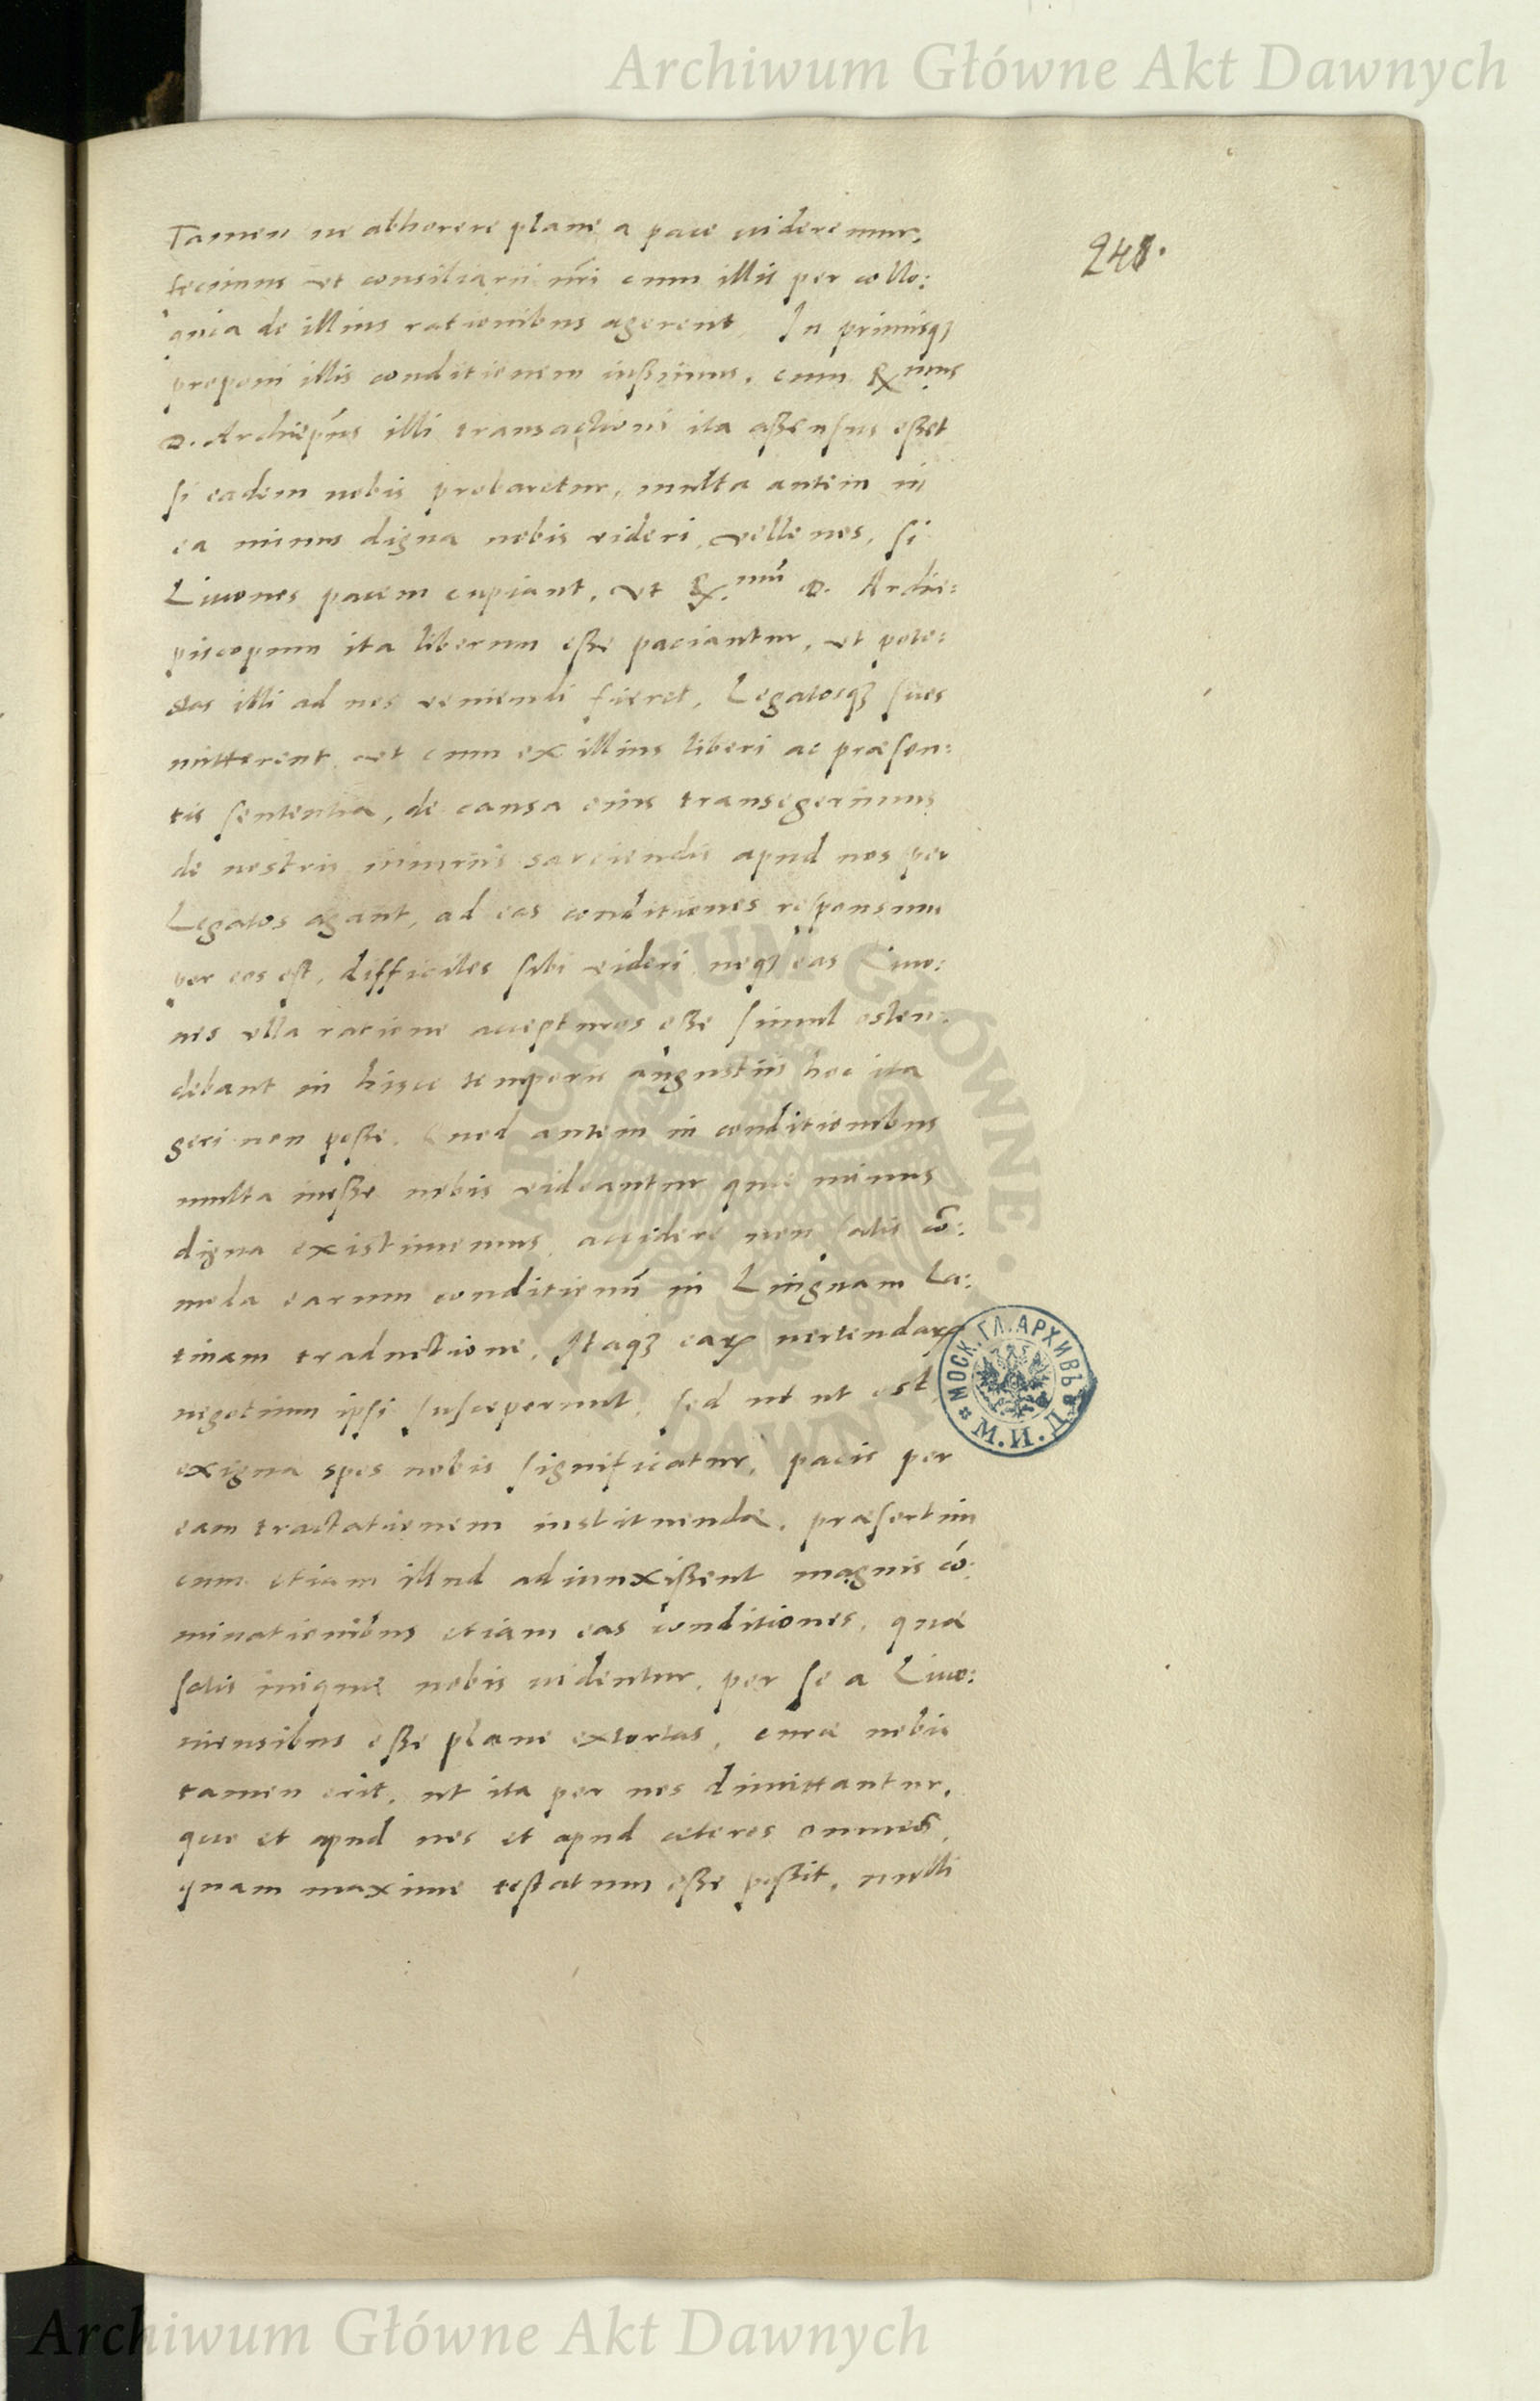 Archiwum Główne Akt Dawnych
241.
Tamen ne abhorere plane a pace videremur,
fecimus vt consiliarii nri cum illis per collo:
quia de illius rationibus agerent. In primisq3
proponi illis conditionem iussimus, cum Rmus
D. Archiepns illi transactioni ita assensus esset
si eadem nobis probaretur, multa autem in
ea minus digna nobis videri, velle nos, si
Liuones pacem cupiant, vt R.mu D. Archie:
piscopum ita liberum esse paciantur, vt pote:
stas illi ad nos veniendi fieret, Legatosq3 suos
mitterent, vt cum ex illius liberi ac præsen:
tis sententia, de causa eius transegerimus
de nostris iniuriis sarciendis apud nos per
Legatos agant, ad eas conditiones responsum
per eos est, difficiles sibi videri, neq3 eas Liuo:
nes vlla racione accepturos esse simul osten:
debant in hisce temporis angustiis hoc ita
geri non posse. Quod autem in conditionibus
multa inesse nobis videantur que minus
digna existimemus, accidere non satis co:
moda earum conditionu in Linguam La:
tinam traductione, Itaq3 earꝝ vertendarꝝ
negotium ipsi susceperunt, sed ut ut est
exigua spes nobis significatur, pacis per
eam tractationem instituendæ, præsertim
cum etiam illud adiunxissent magnis co:
minationibus etiam eas conditiones, quæ
satis inique nobis uidentur, per se a Liuo:
niensibus esse plane extortas, curæ nobis
tamen erit, ut ita per nos dimittantur,
quo et apud nos et apud ceteros omnes,
quam maxime testatum esse possit, nulli
МОСК. ГЛ. АРХИВЪ
М. И. Д.
ARCHIWUM GŁÓWNE AKT DAWNYCH
Archiwum Główne Akt Dawnych